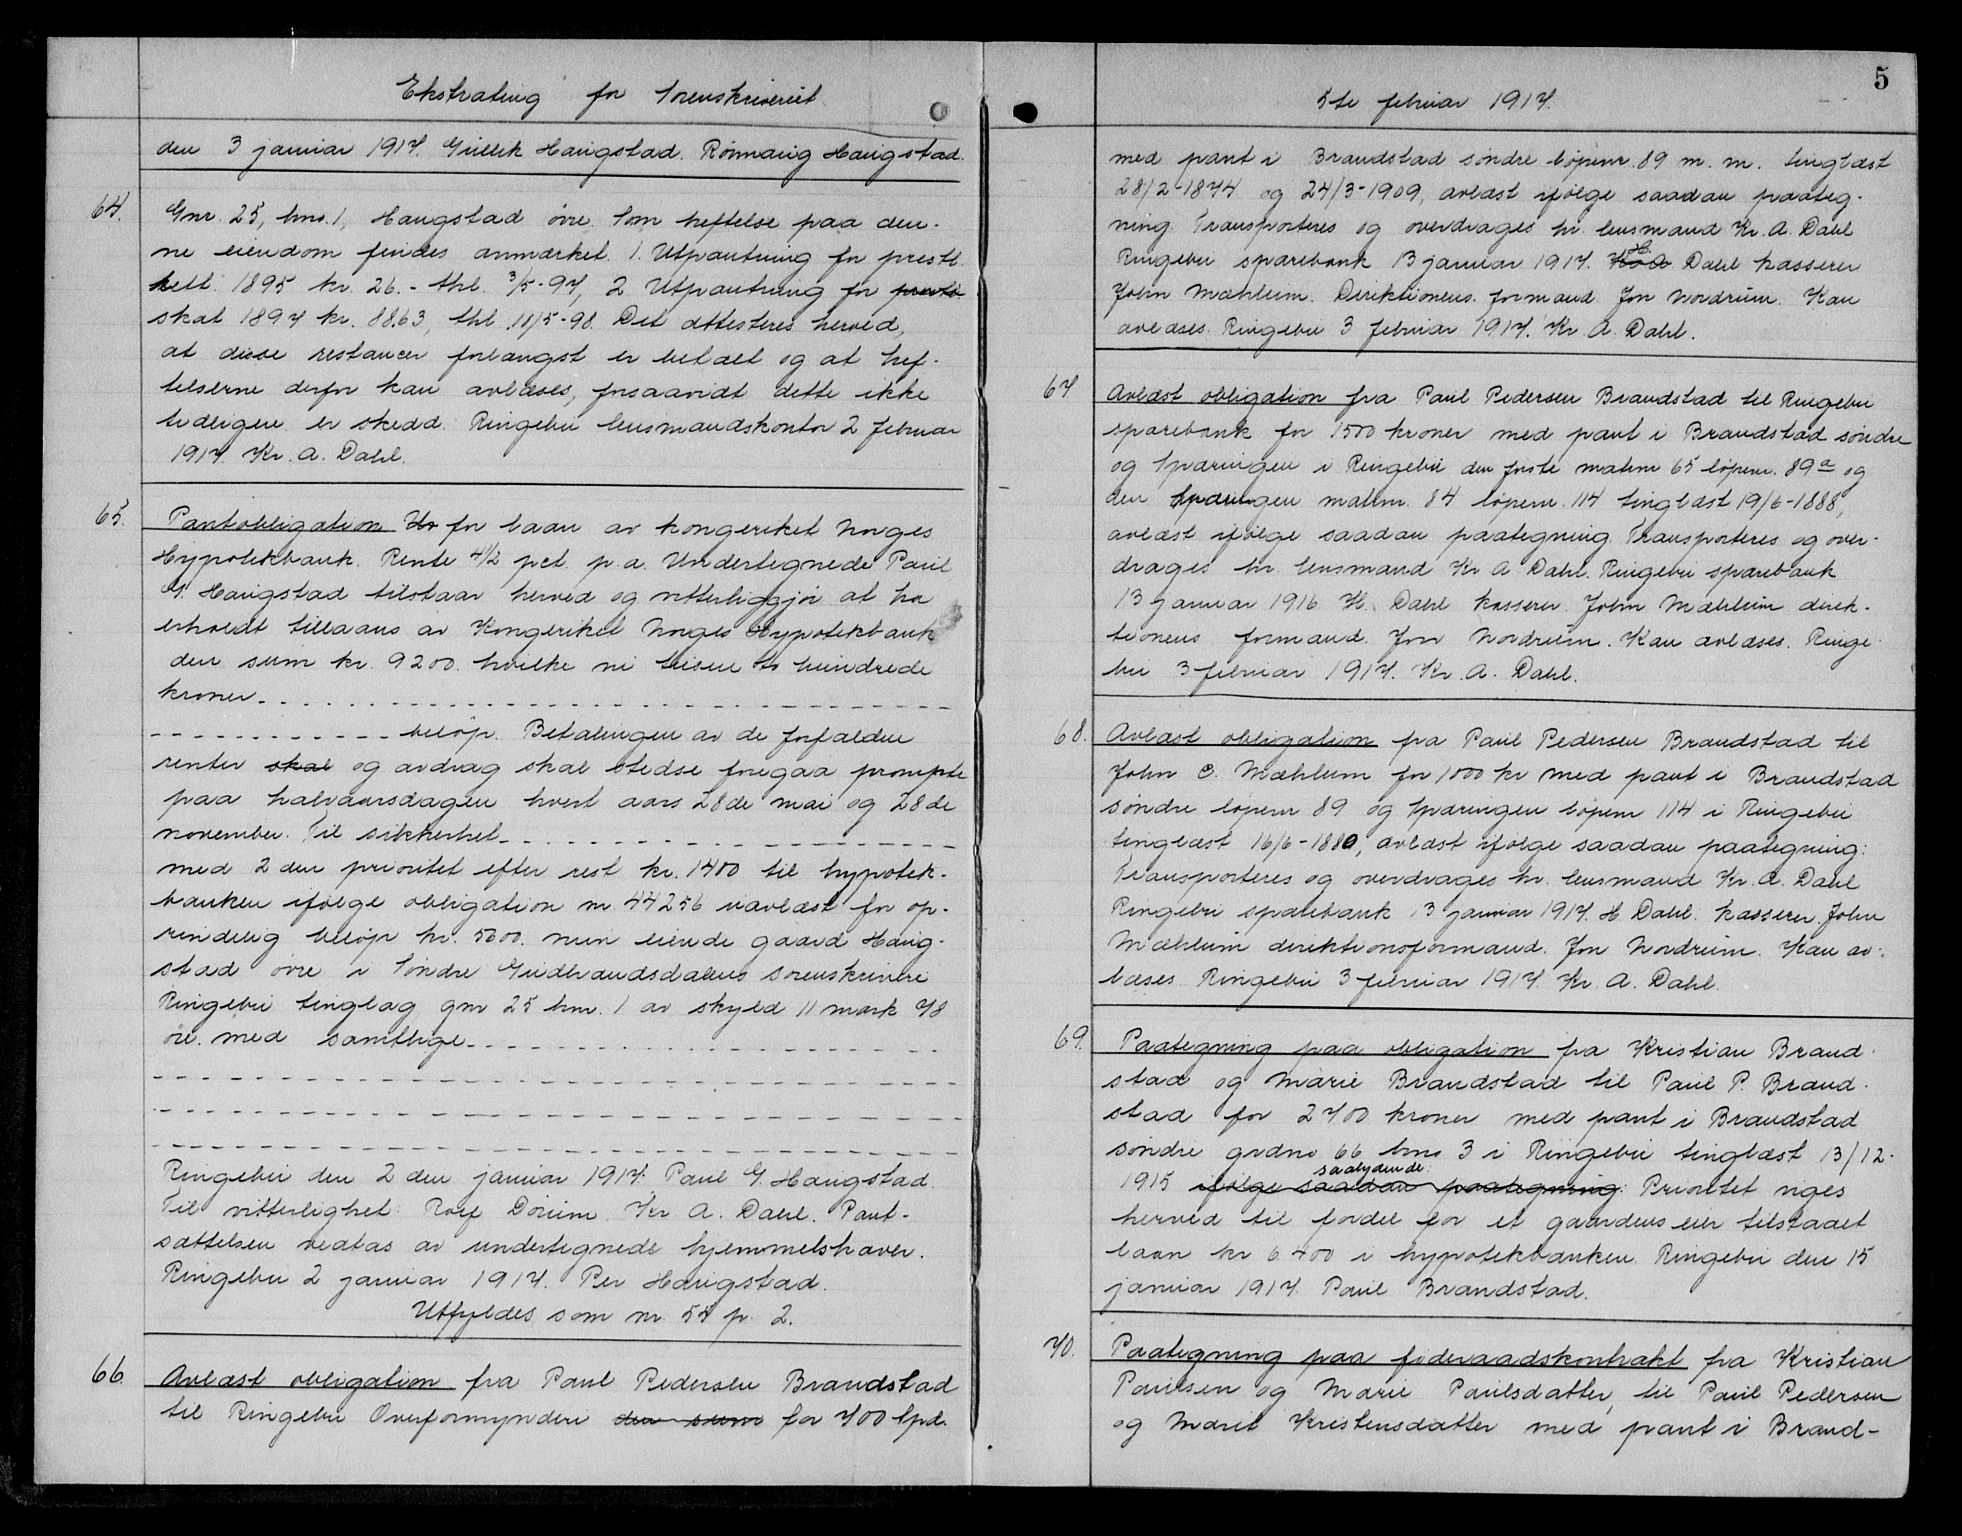 Ekstrating for Sorenskriveriet
den 3 januar 1917. Gullik Haugstad. Rønnaug Haugstad.
64. Gnr. 25, bno. 1, Haugstad øvre. Som heftelse paa den-
ne eiendom findes anmærket. 1. Utpantning for prestl.
kelt. 1895 kr. 26.- thl. 3/5-97, 2 Utpantning for
skat 1897 kr. 88.63, thl. 11/5-98. Det attesteres herved,
at disse restancer forlængst er betalt og at hef-
telserne derfor kan avlæses, forsaavidt dette ikke
tidligere er skedd. Ringebu lensmandskontor 2 februar
1917. Kr. A. Dahl.
65. Pantobligation for laan av kongeriket Norges
Hypotekbank. Rente 4 1/2 pct. p.a. Undertegnede Paul
G. Haugstad tilstaar herved og vitterliggjør at ha
erholdt tillaans av Kongeriket Norges Hypotekbank
den sum kr. 9200. hvilke ni tusen to hundrede
kroner
beløp. Betalingen av de forfaldne
renter skal og avdrag skal stedse foregaa prompte
paa halvaarsdagen hvert aars 28de mai og 28de
november. Til sikkerhet
med 2den prioritet efter rest kr. 1400 til hypotek-
banken ifølge obligation nr 44256 uavlæst for op-
rindelig beløp kr. 5600. min eiende gaard Haug-
stad øvre i Søndre Gudbrandsdalens sorenskriveri
Ringebu tinglag gnr 25 bnr. 1 av skyld 11 mark 78
øre. med samtlige
Ringebu den 2den januar 1917. Paul G. Haugstad.
Til vitterlighet: Rolf Dørum. Kr. A. Dahl. Pant-
sættelsen vedtas av undertegnede hjemmelshaver.
Ringebu 2 januar 1917. Per Haugstad.
Utfyldes som nr. 57 p. 2.
66. Avlæst obligation fra Paul Pedersen Brandstad
til Ringebu Overformynderi den sum for 700 Spd.
5
5te februar 1917.
med pant i Brandstad søndre løpenr. 89 m. m. tinglæst
28/2-1874 og 24/3-1909, avlæst ifølge saadan paateg-
ning. Transporteres og overdrages hr. lensmand Kr. A. Dahl
Ringebu sparebank 13 januar 1917. H. Dahl kasserer
John Mæhlum. Direktionens formand Jon Nordrum. Kan
avlæses. Ringebu 3 februar 1917. Kr. A. Dahl.
67 Avlæst obligation fra Paul Pedersen Brandstad til Ringebu
sparebank for 1500 kroner med pant i Brandstad søndre
og Spæringen i Ringebu den første matrnr 65 løpenr. 89a og
den Spæringen matrnr. 84 løpenr. 114 tinglæst 19/6-1888,
avlæst ifølge saadan paategning. Transporteres og over-
drages hr. lensmand Kr A. Dahl. Ringebu sparebank
13 januar 1916 H. Dahl kasserer. John Mæhlum direk-
tionens formand. Jon Nordrum. Kan avlæses. Ringe-
bu 3 februar 1917. Kr. A. Dahl.
68. Avlæst obligation fra Paul Pedersen Brandstad til
John C. Mæhlum for 1000 kr med pant i Brandstad
søndre løpenr 89 og Spæringen løpenr 114 i Ringebu
tinglæst 16/6-1880, avlæst ifølge saadan paategning:
Transporteres og overdrages hr. lensmand Kr. A. Dahl
Ringebu sparebank 13 januar 1917. H. Dahl. kasserer. John
Mæhlum direktionsformand. Jon Nordrum. Kan av-
læses. Ringebu 3 februar 1917. Kr. A. Dahl.
69. Paategning paa obligation fra Kristian Brand-
stad og Marie Brandstad til Paul P. Brand-
stad for 2700 kroner med pant i Brandstad
søndre grdno 66 bno 3 i Ringebu tinglæst 13/12-
saalydende:
1915 ifølge saadan paategning: Prioritet viges
herved til fordel for et gaardens eier tilstaaet
laan kr 6400 i hypotekbanken. Ringebu den 15
januar 1917. Paul Brandstad.
70. Paategning paa føderaadskontrakt fra Kristian
Paulsen og Marie Paulsdatter, til Paul Pedersen
og Marit Kristensdatter med pant i Brand-